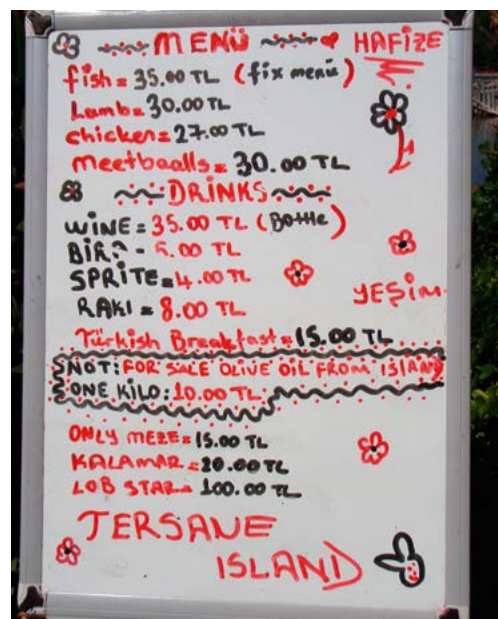 MENÜ HAFİZE
fish = 35.00 TL (fix menü)
Lamb = 30.00 TL
chicken = 27.00 TL
meetbaalls = 30.00 TL
DRİNKS
WİNE = 35.00 TL (Bottle)
BİR? - 5.00 TL
SPRİTE = 4.00 TL
YEŞİM
RAKI = 8.00 TL
Türkish Breakfast = 15.00 TL
NOT: FOR SALE OLİVE OİL FROM ISLAND
ONE KİLO: 10.00 TL
ONLY MEZE = 15.00 TL
KALAMAR = 20.00 TL
LOB STAR = 100.00 TL
TERSANE
ISLAND